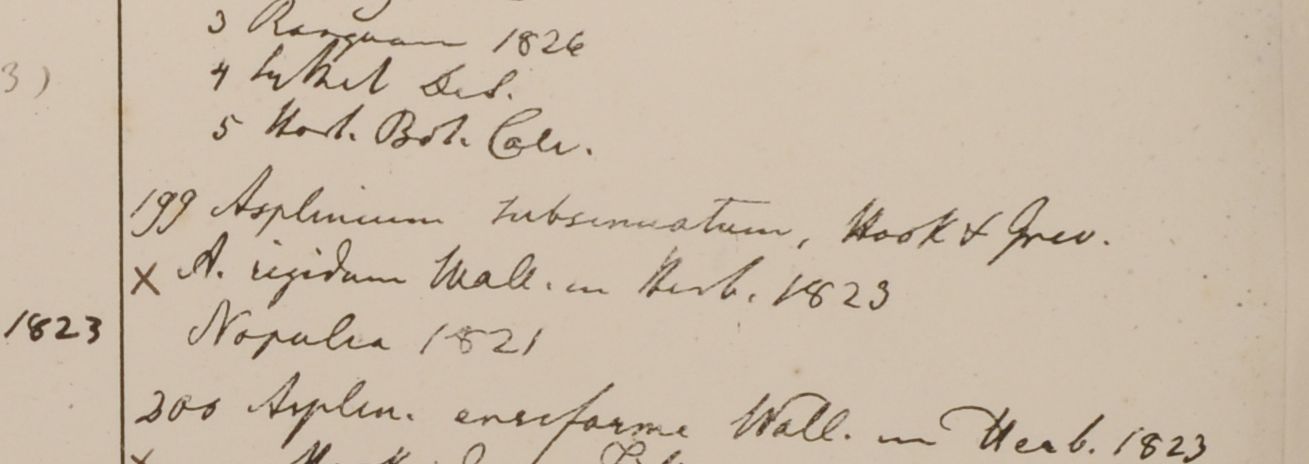 3 Rangoon 1826
3)
4 Sylhet DeS.
5 Hort. Bot. Calc.
199 Asplenium subsinuatum, Hook & Grev.
x A. rigidum Wall. in Herb. 1823
1823
Napalia 1821
200 Asplen. ensiforme Wall. in Herb. 1823
x